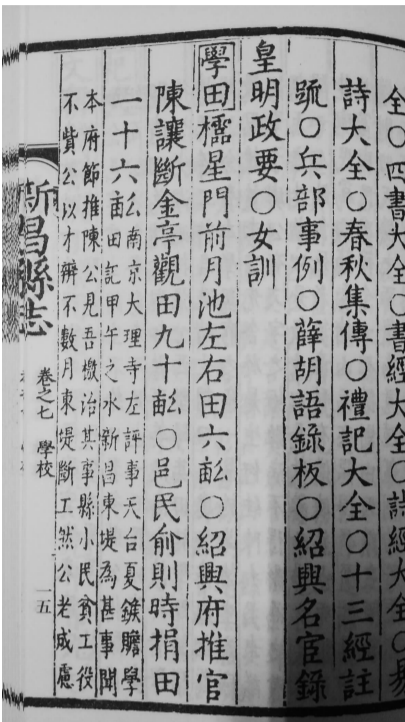 全○四書大全○書經大全○詩經大全○易
詩大全○春秋集傳○禮記大全○十三經註
號○兵部事例○薛胡語錄板○紹興名宦錄
皇明政要○女訓
學田櫺星門前月池左右田六畝○紹興府推官
陳讓斷金亭觀田九十畝○邑民俞則時捐田
一十六畝南京大理寺左評事天台夏鍭贍學
田記甲午之水新昌東堤為甚事聞
本府節推陳公見吾檄治其事縣小民貧工役
不貲公以才辨不數月東堤斷工然公老成慮
新昌縣志
卷之七 學校
一五